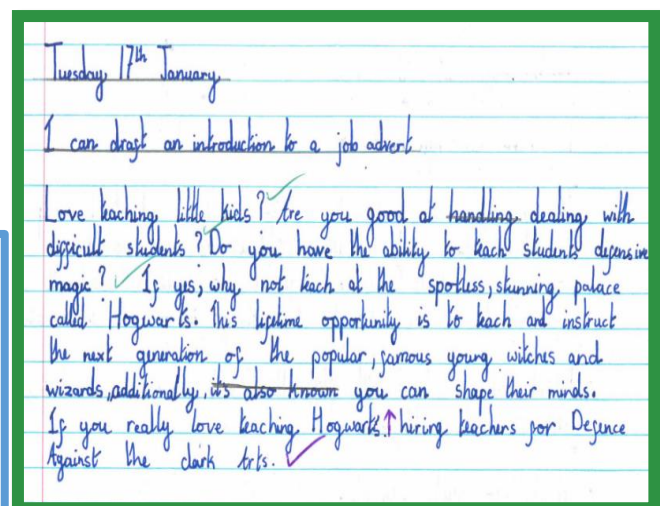 Tuesday 17th January
I can draft an introduction to a job advert
Love teaching little kids? Are you good at handling dealing with
difficult students? Do you have the ability to teach students defensive
magic? If yes; why not teach at the spotless, stunning palace
called Hogwarts. This lifetime opportunity is to teach and instruct
the next generation of the popular, famous young witches and
wizards, additionally, it's also known you can shape their minds.
If you really love teaching Hogwarts ↑ hiring teachers for Defence
Against the dark Arts.